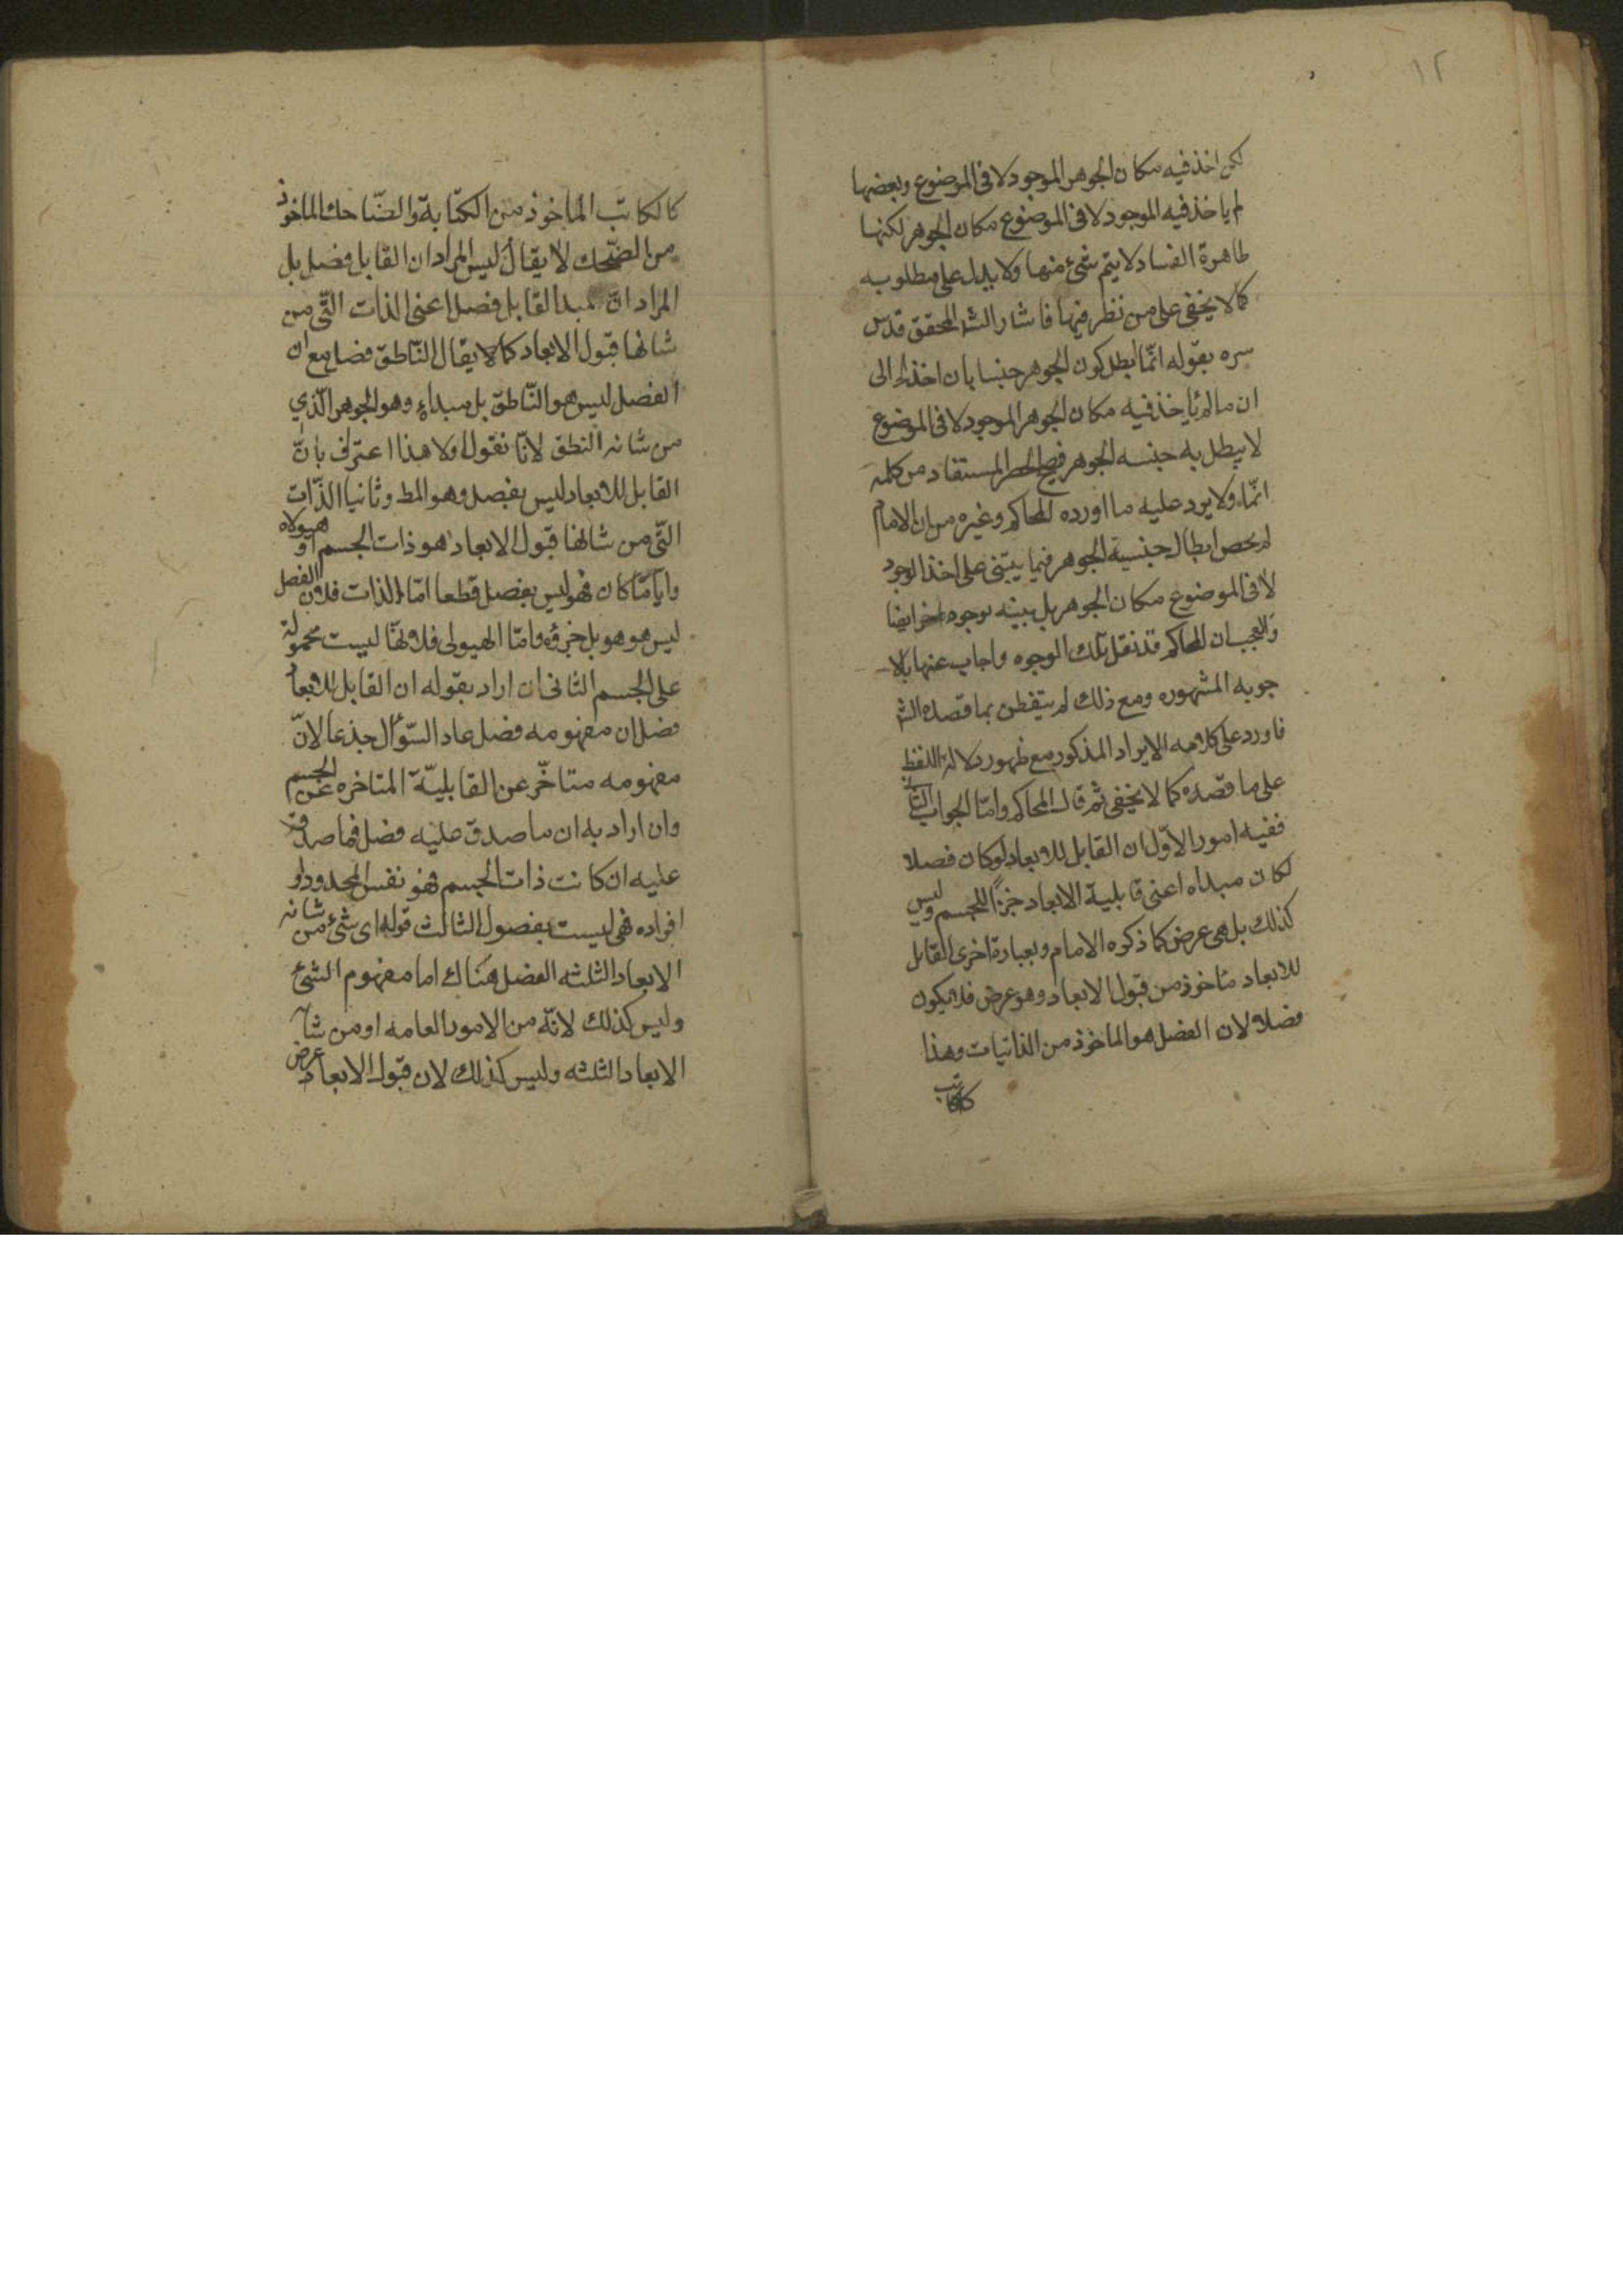 ١٢
لكن اخذ فيه مكان الجوهر الموجود لا فى الموضوع وبعضها
لم ياخذ فيه الموجود لا فى الموضوع مكان الجوهر لكنها
ظاهرة الفساد لا يتم شئ منها ولا يدل على مطلوبه
كما لا يخفى على من نظر فيها فاشار الش المحقق قدس
سره بقوله انّما ابطل كون الجوهر جنسا بان اخذ الى
ان ما لم ياخذ فيه مكان الجوهر الموجود لا فى الموضوع
لا يبطل به جنسيه الجوهر فيصح الحصر المستفاد من كلمة
انّما ولا يرد عليه ما اورده المحاكم وغيره من ان الامام
لم يخص ابطال جنسية الجوهر فيما يبتنى على اخذ الموجود
لا فى الموضوع مكان الجوهر بل بينه بوجوه اخر ايضا
والعجب ان المحاكم قد نقل تلك الوجوه واجاب عنها بالا
جوبه المشهوره ومع ذلك لم يتفطن بما قصده الش
فاورد على كلامه الايراد المذكور مع ظهور دلالة اللفظ
على ما قصده كما لا يخفى ثم قال المحاكم وامّا الجواب الثانى
ففيه امور الاوّل ان القابل للابعاد لو كان فصلا
لكان مبداه اعنى قابلية الابعاد جزءًا للجسم وليس
كذلك بل هى عرض كما ذكره الامام وبعبارة اخرى القابل
للابعاد ماخوذ من قبول الابعاد وهو عرض فلا يكون
فصلا لان الفصل هو الماخوذ من الذاتيات وهذا
كالكاتب
كالكاتب الماخوذ من الكتابة والضّاحك الماخوذ
من الضّحك لا يقال ليس المراد ان القابل فصل بل
المراد انّ مبدا القابل فصل اعنى الذات التّى من
شانها قبول الابعاد كما لا يقال النّاطق فصل مع ان
الفصل ليس هو النّاطق بل مبداه وهو الجوهر الّذي
من شانه النطق لانّا نقول اولا هذا اعتراف بانّ
القابل للابعاد ليس بفصل وهو المط وثانيا الذّات
التّى من شانها قبول الابعاد هو ذات الجسم او هيولاه
وايّا مّا كان فهو ليس بفصل قطعا امّا الذات فلان الفصل
ليس هو هو بل جزؤه وامّا الهيولى فلانها ليست محمولة
على الجسم الثانى ان اراد بقوله ان القابل للابعاد
فصل ان مفهومه فصل عاد السّؤال جذعا لانّ
مفهومه متاخّر عن القابليّة المتاخره عن الجسم
وان اراد به ان ما صدق عليه فصل فما صدق
عليه ان كانت ذات الجسم فهو نفس المحدود او
افراده فهى ليست بفصول الثالث قوله اى شئ من شانه
الابعاد الثلثه الفصل هناك اما مفهوم الشئ
وليس كذلك لانّه من الامور العامه او من شانه
الابعاد الثلثه وليس كذلك لان قبول الابعاد عرض